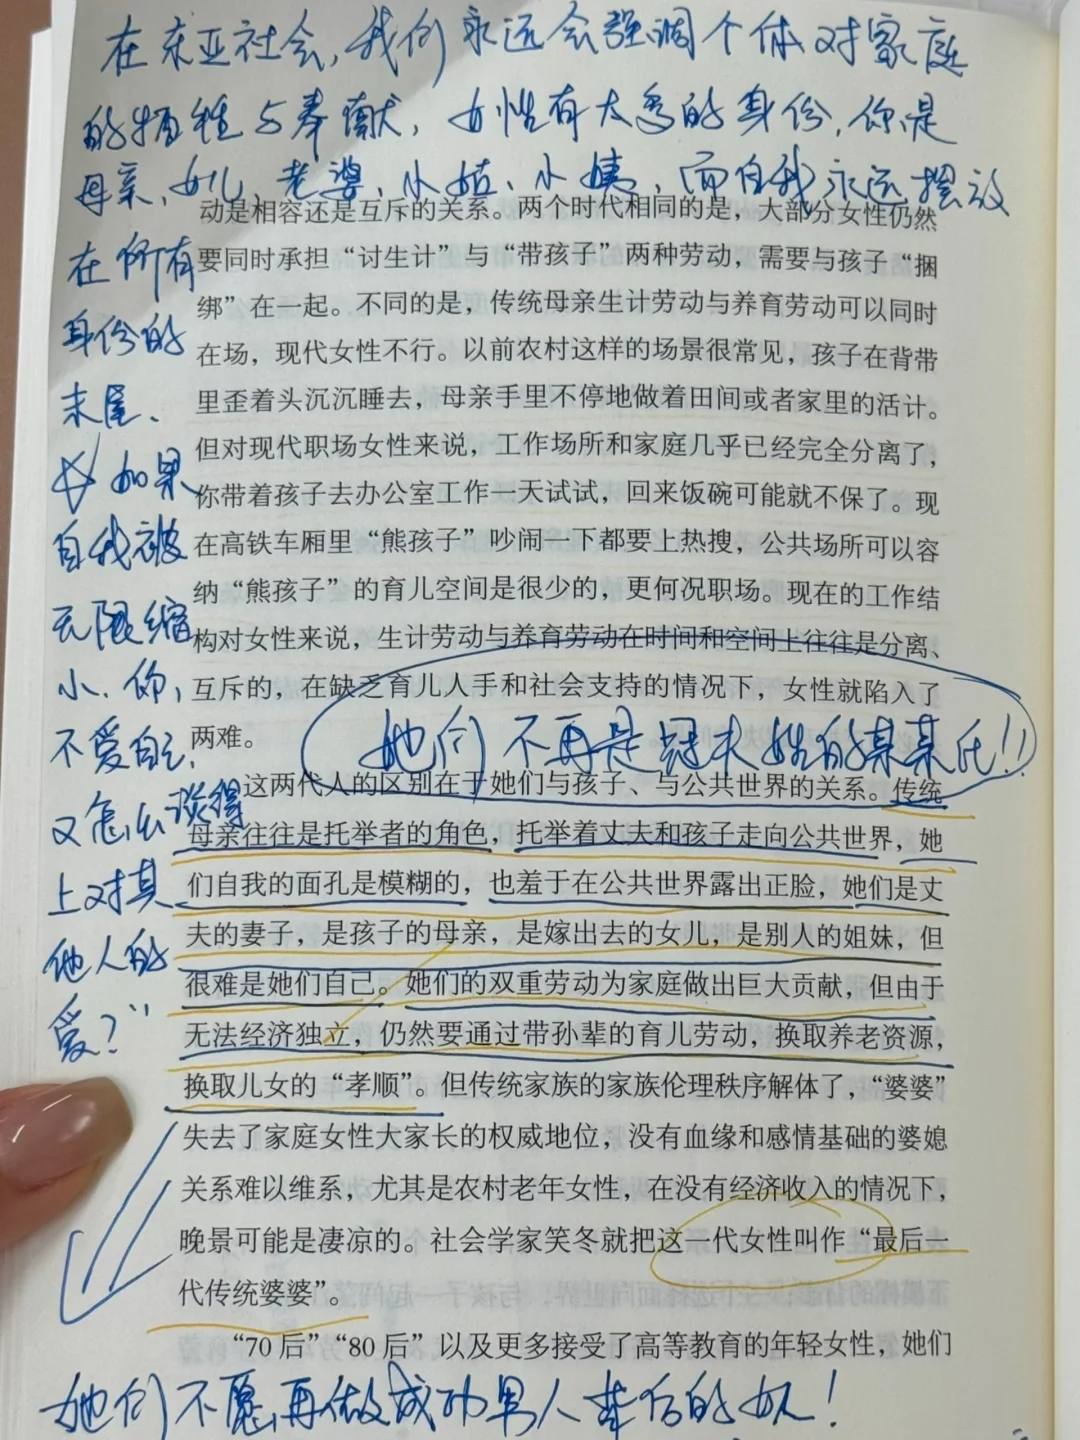 在东亚社会,我们永远会强调个体对家庭
的牺牲与奉献,女性有太多的身份,你是
母亲、女儿、老婆、小姑、小姨,而自我永远摆放
在所有
身份的
末尾、
如果
自我被
无限缩
小,你,
不爱自己,
又怎么谈得
上对其
他人的
爱?”
动是相容还是互斥的关系。两个时代相同的是，大部分女性仍然
要同时承担“讨生计”与“带孩子”两种劳动，需要与孩子“捆
绑”在一起。不同的是，传统母亲生计劳动与养育劳动可以同时
在场，现代女性不行。以前农村这样的场景很常见，孩子在背带
里歪着头沉沉睡去，母亲手里不停地做着田间或者家里的活计。
但对现代职场女性来说，工作场所和家庭几乎已经完全分离了，
你带着孩子去办公室工作一天试试，回来饭碗可能就不保了。现
在高铁车厢里“熊孩子”吵闹一下都要上热搜，公共场所可以容
纳“熊孩子”的育儿空间是很少的，更何况职场。现在的工作结
构对女性来说，生计劳动与养育劳动在时间和空间上往往是分离、
互斥的，在缺乏育儿人手和社会支持的情况下，女性就陷入了
两难。
她们不再是冠夫姓的某某氏!!
这两代人的区别在于她们与孩子、与公共世界的关系。传统
母亲往往是托举者的角色，托举着丈夫和孩子走向公共世界，她
们自我的面孔是模糊的，也羞于在公共世界露出正脸，她们是丈
夫的妻子，是孩子的母亲，是嫁出去的女儿，是别人的姐妹，但
很难是她们自己。她们的双重劳动为家庭做出巨大贡献，但由于
无法经济独立，仍然要通过带孙辈的育儿劳动，换取养老资源，
换取儿女的“孝顺”。但传统家族的家族伦理秩序解体了，“婆婆”
失去了家庭女性大家长的权威地位，没有血缘和感情基础的婆媳
关系难以维系，尤其是农村老年女性，在没有经济收入的情况下，
晚景可能是凄凉的。社会学家笑冬就把这一代女性叫作“最后一
代传统婆婆”。
“70后”“80后”以及更多接受了高等教育的年轻女性，她们
她们不愿再做成功男人背后的女人!